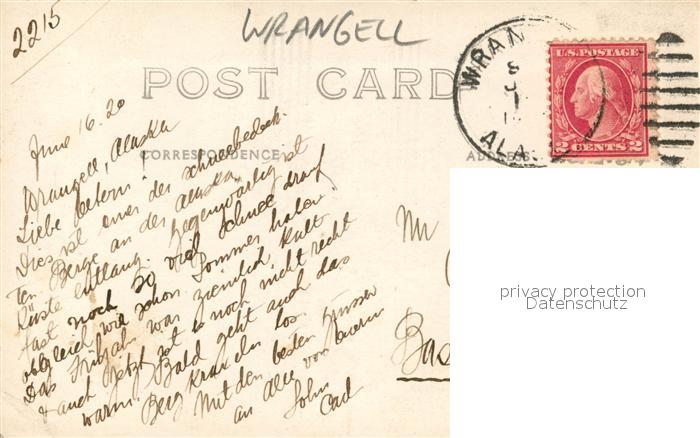 2215
WRANGELL
POST CARD
CORRESPONDENCE
ADDRESS
WRAN
8
ALA.
U.S. POSTAGE
2 CENTS 2
June 16. 20
Wrangell, Alaska
Liebe Eltern!
Dies ist einer der schneebedeck-
ten Berge an der Alaska
Küste entlang. Gegenwärtig ist
fast noch so viel Schnee drauf
obgleich wir schon Sommer haben
Das Frühjahr war ziemlich kalt
& auch jetzt ist es noch nicht recht
warm. Bald geht auch das
Berg kraxeln los.
Mit den besten Grüssen
an alle von Eurem
Sohn
Carl
Mr
Bas
privacy protection
Datenschutz